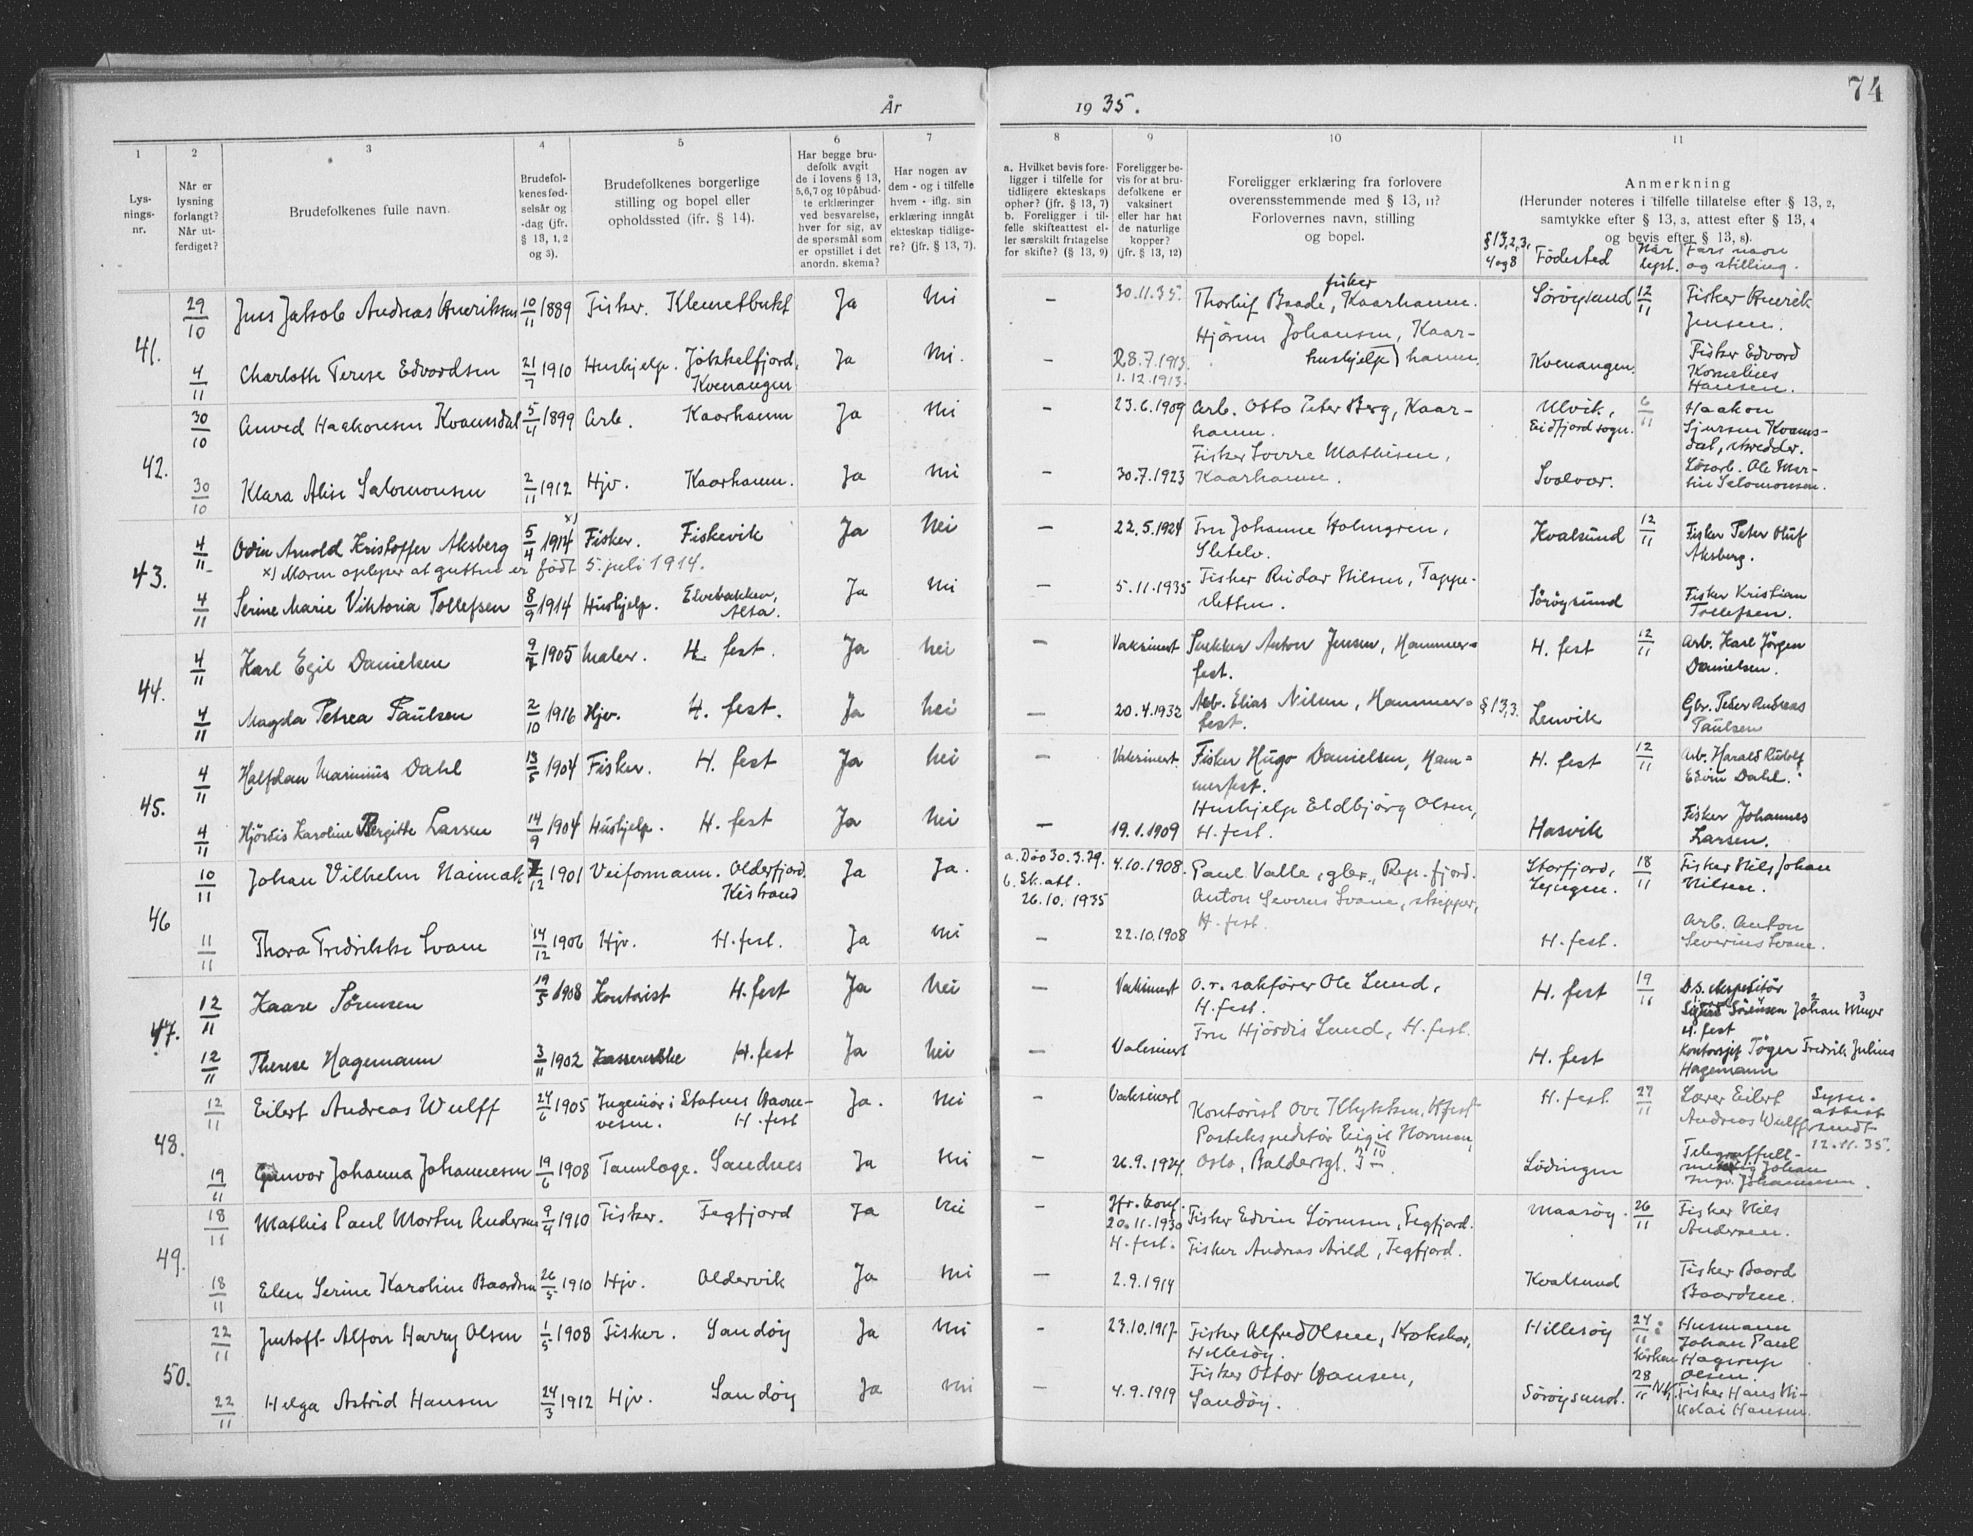 74
År 1935.
1 2 3 4 5 6 7 8 9 10 11
Lysningsnr.
Når er lysning forlangt? Når utferdiget?
Brudefolkenes fulle navn.
Brudefolkenes fødselsår og -dag (jfr. § 13, 1, 2 og 3).
Brudefolkenes borgerlige stilling og bopel eller opholdssted (ifr. § 14).
Har begge brudefolk avgit de i lovens § 13, 5,6,7 og 10 påbudte erklæringer ved besvarelse, hver for sig, av de spørsmål som er opstillet i det anordn. skema?
Har nogen av dem - og i tilfelle hvem - iflg. sin erklæring inngått ekteskap tidligere? (jfr. § 13, 7).
a. Hvilket bevis foreligger i tilfelle for tidligere ekteskaps ophør? (jfr. § 13, 7)
b. Foreligger i tilfelle skifteattest eller særskilt fritagelse for skifte? (§ 13, 9)
Foreligger bevis for at brudefolkene er vaksinert eller har hat de naturlige kopper? (jfr. § 13, 12)
Foreligger erklæring fra forlovere overensstemmende med § 13, 11? Forlovernes navn, stilling og bopel.
Anmerkning
(Herunder noteres i tilfelle tillatelse efter § 13, 2, samtykke efter § 13, 3, attest efter § 13, 4 og bevis efter § 13, 8).
§ 13,2,3, 4 og 8 Fødested Når lyst. Fars navn og stilling.
41. 29/10 Jens Jakob Andreas Henriksen 10/11 1889 Fisker. Klemetbukt Ja Nei — 30.11.35. Thorluf Baade, fisker, Kaarhamn. Sørøysund 12/11 Fisker Henrik Jensen.
4/11 Charloth Terese Edvardsen 21/7 1910 Hushjelp. Jøkkelfjord, Kvenangen Ja Nei. — 28.7.1913. 1.12.1913. Hjørun Johansen, Kaarhamn. hushjelp Kvenangen. Fisker Edvard Kornelius Hansen.
42. 30/10 Amved Haakonsen Kvamsdal 5/11 1899 Arb. Kaarhamn Ja Nei — 23.6.1909 Arb. Otto Peter Berg, Kaarhamn. Ulvik, Eidfjord sogn. 6/11 Haakon Sjursen Kvamsdal, skredder.
30/10 Klara Alise Salomonsen 2/11 1912 Hjv. Kaarhamn. Ja Nei — 30.7.1923 Fisker Sverre Mathisen, Kaarhamn. Svolvær. Løsarb. Ole Martin Salomonsen.
43. 4/11 Odin Arnold Kristoffer Aksberg 5/4 1914 x) Fisker. Fiskevik Ja Nei — 22.5.1924 Fru Johanne Holmgren, Sletelv. Kvalsund 12/11 Fisker Peter Oluf Aksberg.
x) Moren oplyser at gutten er født 5. juli 1914.
4/11 Serine Marie Viktoria Tollefsen 8/9 1914 Hushjelp. Elvebakken, Alta. Ja Nei — 5.11.1935 Fisker Reidar Nilsen, Tappesletten. Sørøysund Fisker Kristian Tollefsen.
44. 4/11 Karl Egil Danielsen 9/7 1905 Maler. H. fest. Ja Nei — Vaksinert Snekker Anton Jensen, Hammerfest. H. fest 12/11 Arb. Karl Jørgen Danielsen.
4/11 Magda Petrea Paulsen 2/10 1916 Hjv. H. fest. Ja Nei — 20.4.1932 Arb. Elias Nilsen, Hammerfest. § 13,3. Lenvik Gbr. Peder Andreas Paulsen
45. 4/11 Halfdan Marinius Dahl 13/5 1904 Fisker. H. fest Ja Nei — Vaksinert. Fisker Hugo Danielsen, Hammerfest. H. fest 12/11 Arb. Harald Rudolf Edvin Dahl.
4/11 Hjørdis Karoline Bergitte Larsen 14/9 1904 Hushjelp. H. fest Ja Nei — 19.1.1909 Hushjelp Eldbjørg Olsen, H. fest. Hasvik Fisker Johannes Larsen.
46 10/11 Johan Vilhelm Naimak /12 1901 Veiformann. Olderfjord. Kistrand Ja Ja. a. Død 30.3.29. b. Sk. att. 26.10.1935 4.10.1908. Paul Valle, gbr., Rep. fjord. Storfjord, Lyngen. 18/11 Fisker Nils Johan Nilsen.
11/11 Thora Fredrikke Svane 14/12 1906 Hjv. H. fest. Ja Nei — 22.10.1908 Anton Severus Svane, skipper, H. fest. H. fest. Arb. Anton Severins Svane.
47. 12/11 Kaare Sørensen 19/5 1908 Kontorist H. fest Ja Nei — Vaksinert O.r. sakfører Ole Lund, H. fest. H. fest 19/11 D.s. ekspeditør Sigurd Sørensen Johan Meyer H. fest
12/11 Therese Hagemann 3/11 1902 Kassererske H. fest Ja Nei — Vaksinert Fru Hjørdis Lund, H. fest. H. fest Kontorsjef Tøger Fredrik Julius Hagemann
48. 12/11 Eilert Andreas Wulff 24/6 1905 Ingeniør i Statens Havnevesen. H. fest Ja. Nei — Vaksinert Kontorist Ove Klykken, H fest H. fest. 27/11 Lærer Eilert Andreas Wulff Lysn. attest sendt 12.11.35.
19/11 Gunvor Johanna Johannesen 19/6 1908 Tannlæge. Sandnes Ja Nei — 26.9.1924. Postekspeditør Eigil Norman, Oslo, Baldersgt. 3 IV. Lødingen Telegraffullmektig Johan Ingv. Johannesen.
49. 18/11 Mathis Paul Morten Andersen 9/4 1910 Fisker. Fegfjord Ja Nei — Ifr. konf. 20.11.1930 H. fest. Fisker Edvin Sørensen, Fegfjord. Maasøy. 26/11 Fisker Nils Andersen.
18/11 Elen Serine Karoline Baardsen 26/5 1910 Hjv. Oldervik Ja Nei — 2.9.1914 Fisker Andreas Arild, Fegfjord. Kvalsund Fisker Baard Baardsen.
50. 22/11 Jentoft Alfon Harry Olsen 1/5 1908 Fisker. Sandøy Ja Nei — 23.10.1917. Fisker Alfred Olsen, Krokskar, Hillesøy. Hillesøy 24/11 i kirken Husmann Johan Paul Hagerup Olsen.
22/11 Helga Astrid Hansen 24/3 1912 Hjv. Sandøy Ja Nei — 4.9.1919 Fisker Ottar Hansen, Sandøy. Sørøysund. 28/11 Fisker Hans Nikolai Hansen.